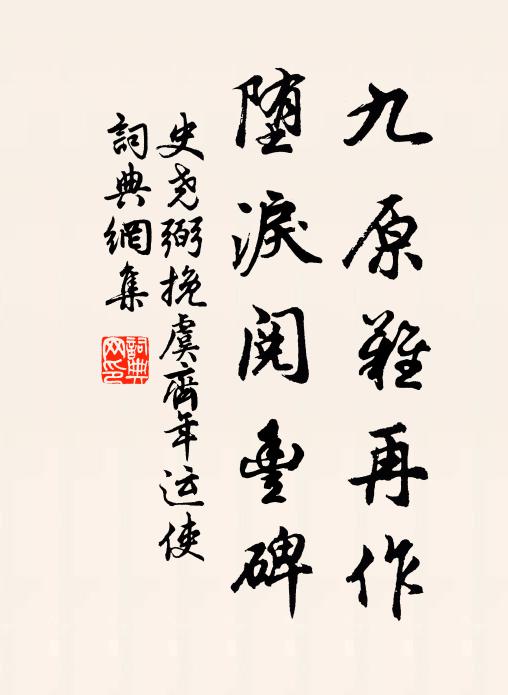 九原難再作
墮淚閱豐碑
史堯弼挽虞齊年運使
詞典網集
詞典網印